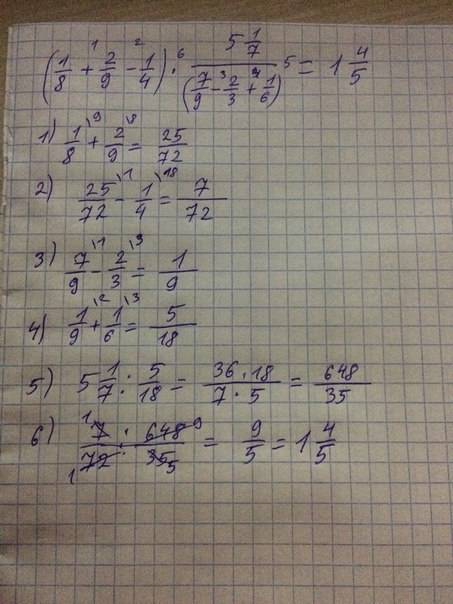 (1/8 +¹ 2/9 -² 1/4) ·⁶ 5 1/7 / (7/9 -³ 2/3 +⁴ 1/6) ⁵ = 1 4/5
1) 1/8 \9 + 2/9 \8 = 25/72
2) 25/72 \1 - 1/4 \18 = 7/72
3) 7/9 \1 - 2/3 \3 = 1/9
4) 1/9 \2 + 1/6 \3 = 5/18
5) 5 1/7 : 5/18 = 36·18 / 7·5 = 648/35
6) ¹7/72₁ : 648⁹/35₅ = 9/5 = 1 4/5